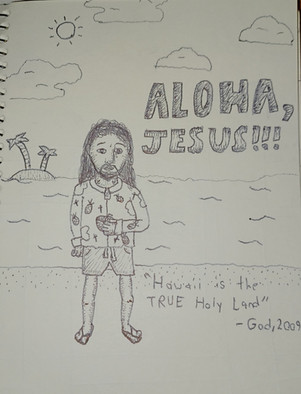 ALOHA,
JESUS!!!
"Hawaii is the
TRUE Holy Land"
- God, 2009